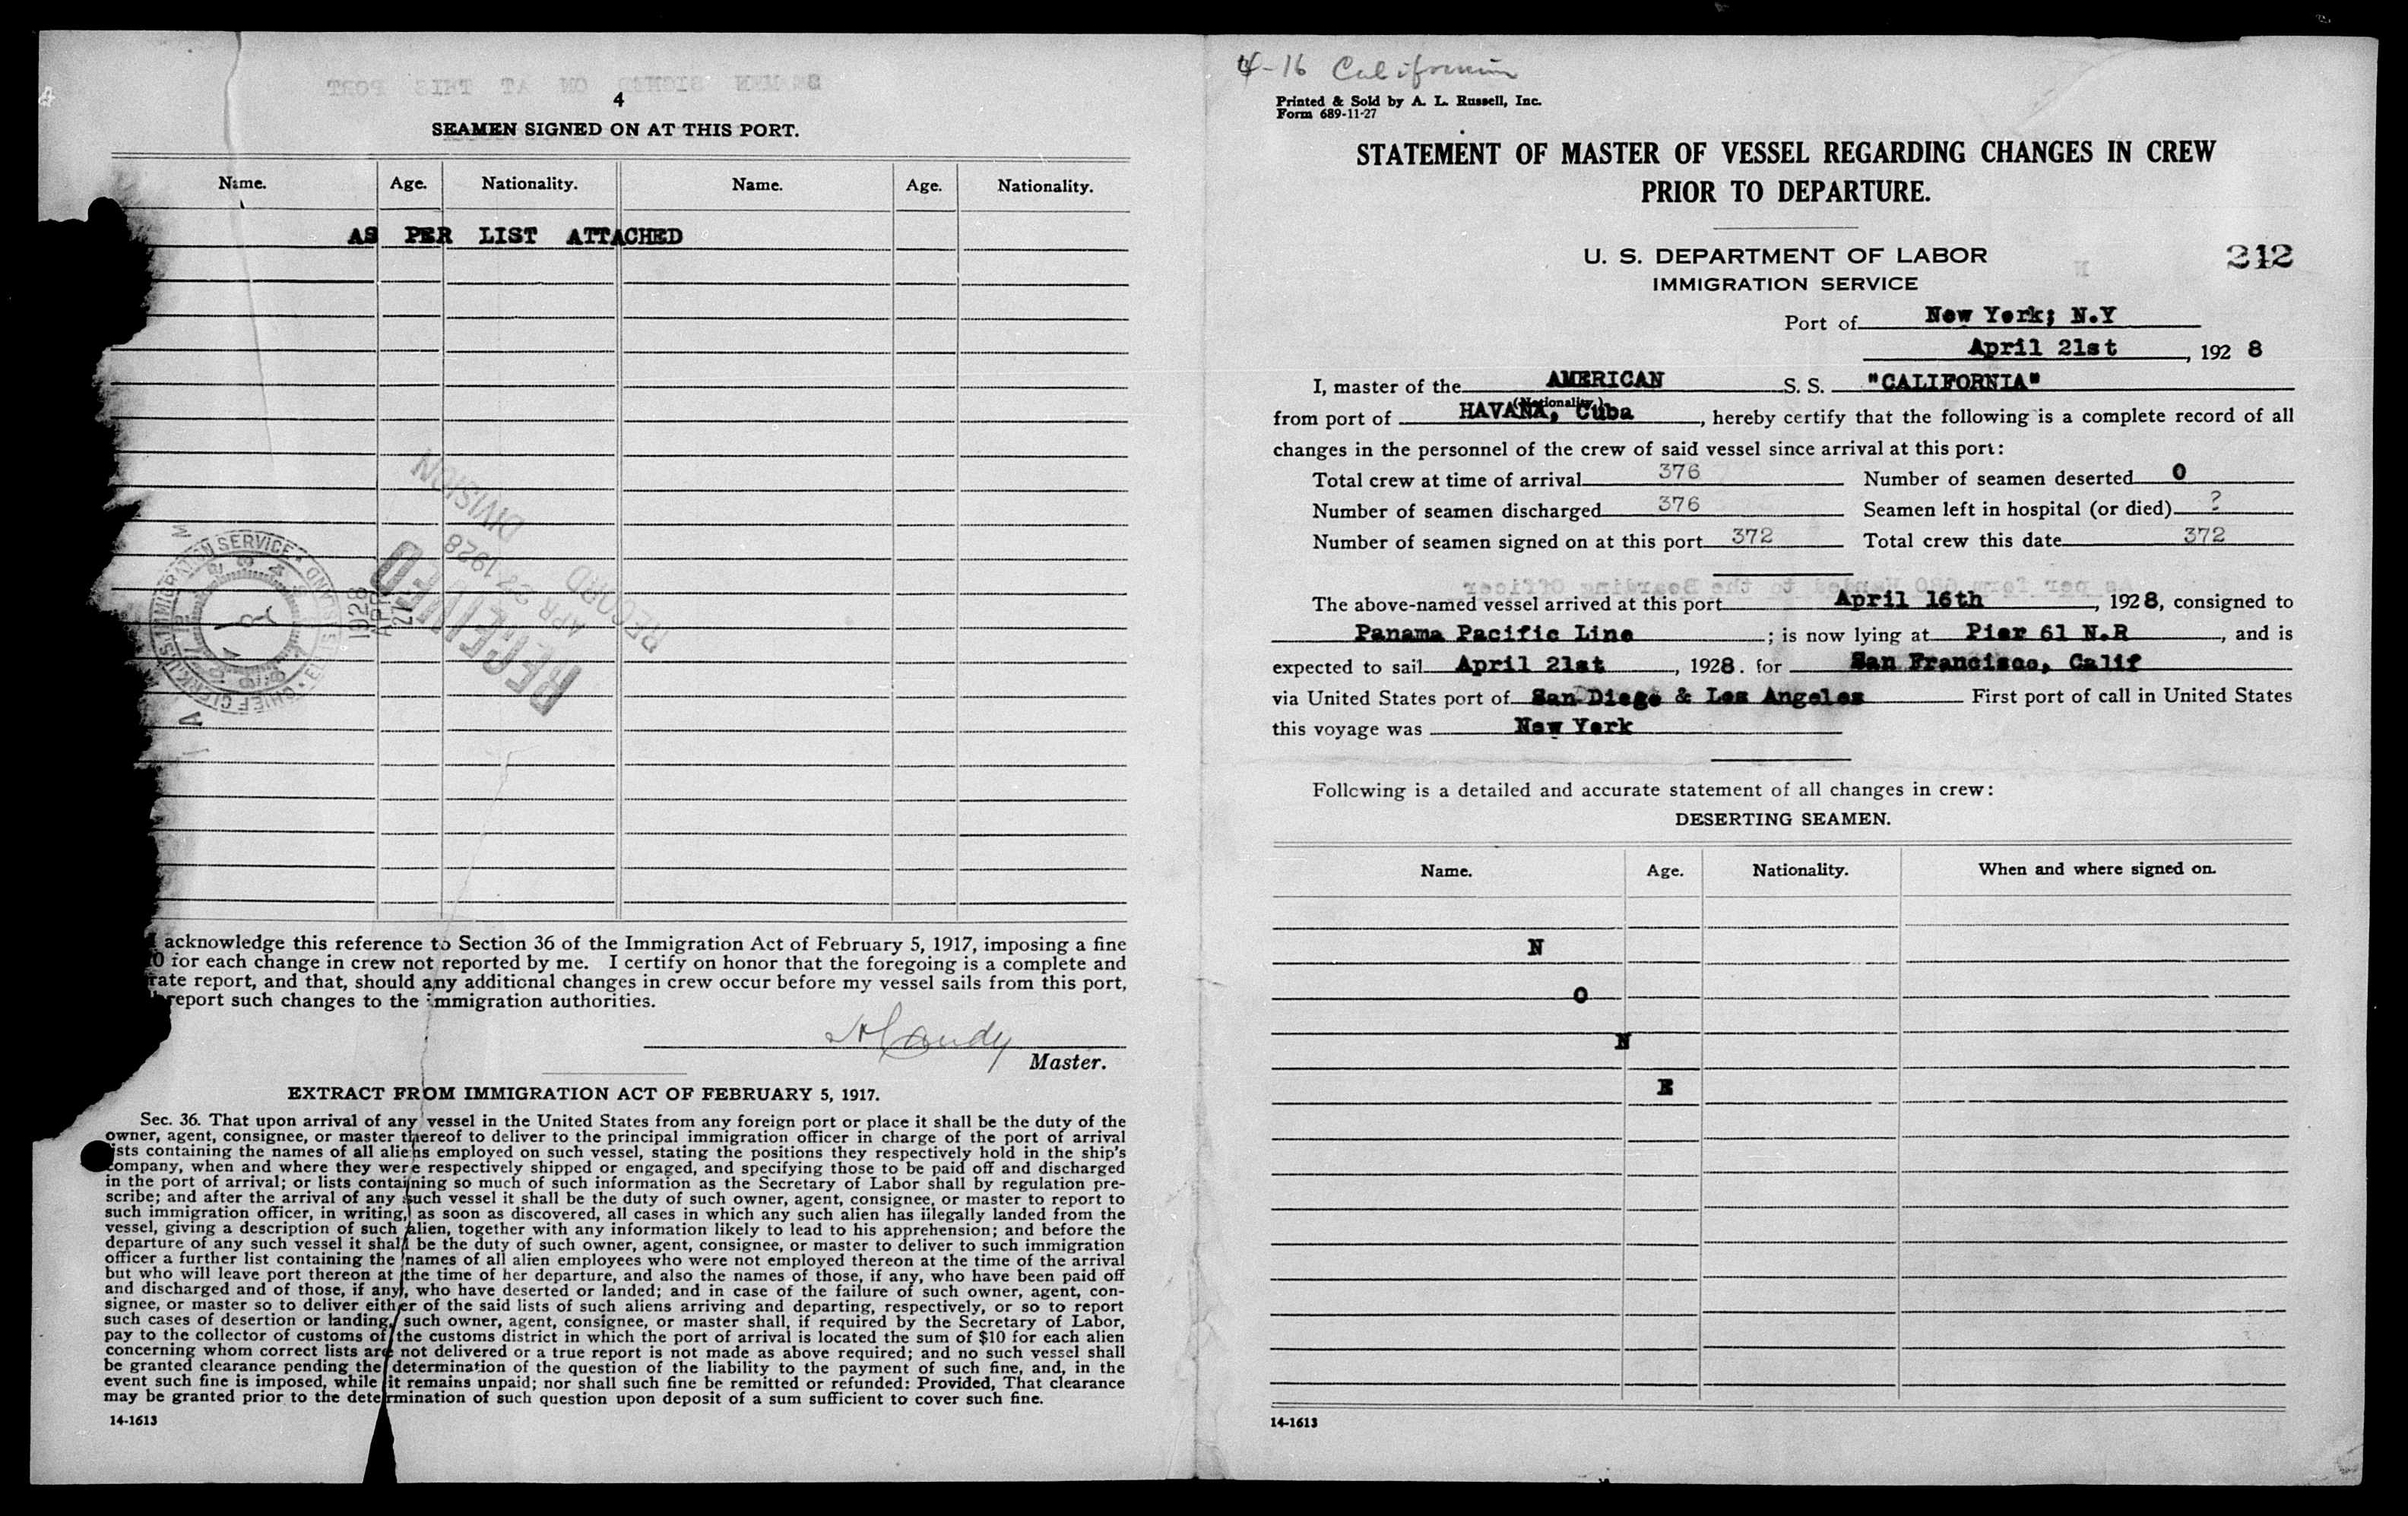 4
SEAMEN SIGNED ON AT THIS PORT.
Name. Age. Nationality. Name. Age. Nationality.
AS PER LIST ATTACHED
DIVISION
APR 22 1928
RECORD
RECEIVED
1928
APR
21
acknowledge this reference to Section 36 of the Immigration Act of February 5, 1917, imposing a fine
0 for each change in crew not reported by me. I certify on honor that the foregoing is a complete and
rate report, and that, should any additional changes in crew occur before my vessel sails from this port,
report such changes to the immigration authorities.
Master.
EXTRACT FROM IMMIGRATION ACT OF FEBRUARY 5, 1917.
Sec. 36. That upon arrival of any vessel in the United States from any foreign port or place it shall be the duty of the
owner, agent, consignee, or master thereof to deliver to the principal immigration officer in charge of the port of arrival
ists containing the names of all aliens employed on such vessel, stating the positions they respectively hold in the ship's
company, when and where they were respectively shipped or engaged, and specifying those to be paid off and discharged
in the port of arrival; or lists containing so much of such information as the Secretary of Labor shall by regulation pre-
scribe; and after the arrival of any such vessel it shall be the duty of such owner, agent, consignee, or master to report to
such immigration officer, in writing, as soon as discovered, all cases in which any such alien has illegally landed from the
vessel, giving a description of such alien, together with any information likely to lead to his apprehension; and before the
departure of any such vessel it shall be the duty of such owner, agent, consignee, or master to deliver to such immigration
officer a further list containing the names of all alien employees who were not employed thereon at the time of the arrival
but who will leave port thereon at the time of her departure, and also the names of those, if any, who have been paid off
and discharged and of those, if any, who have deserted or landed; and in case of the failure of such owner, agent, con-
signee, or master so to deliver either of the said lists of such aliens arriving and departing, respectively, or so to report
such cases of desertion or landing, such owner, agent, consignee, or master shall, if required by the Secretary of Labor,
pay to the collector of customs of the customs district in which the port of arrival is located the sum of $10 for each alien
concerning whom correct lists are not delivered or a true report is not made as above required; and no such vessel shall
be granted clearance pending the determination of the question of the liability to the payment of such fine, and, in the
event such fine is imposed, while it remains unpaid; nor shall such fine be remitted or refunded: Provided, That clearance
may be granted prior to the determination of such question upon deposit of a sum sufficient to cover such fine.
14-1613
4-16 California
Printed & Sold by A. L. Russell, Inc.
Form 689-11-27
STATEMENT OF MASTER OF VESSEL REGARDING CHANGES IN CREW
PRIOR TO DEPARTURE.
U. S. DEPARTMENT OF LABOR
IMMIGRATION SERVICE
212
Port of New York; N.Y
April 21st, 1928
I, master of the AMERICAN S. S. "CALIFORNIA"
(Nationality.)
from port of HAVANA, Cuba, hereby certify that the following is a complete record of all
changes in the personnel of the crew of said vessel since arrival at this port:
Total crew at time of arrival 376 Number of seamen deserted 0
Number of seamen discharged 376 Seamen left in hospital (or died) ?
Number of seamen signed on at this port 372 Total crew this date 372
The above-named vessel arrived at this port April 16th, 1928, consigned to
Panama Pacific Line; is now lying at Pier 61 N.R, and is
expected to sail April 21st, 1928. for San Francisco, Calif
via United States port of San Diego & Los Angeles First port of call in United States
this voyage was New York
Following is a detailed and accurate statement of all changes in crew:
DESERTING SEAMEN.
Name. Age. Nationality. When and where signed on.
N
O
N
E
14-1613